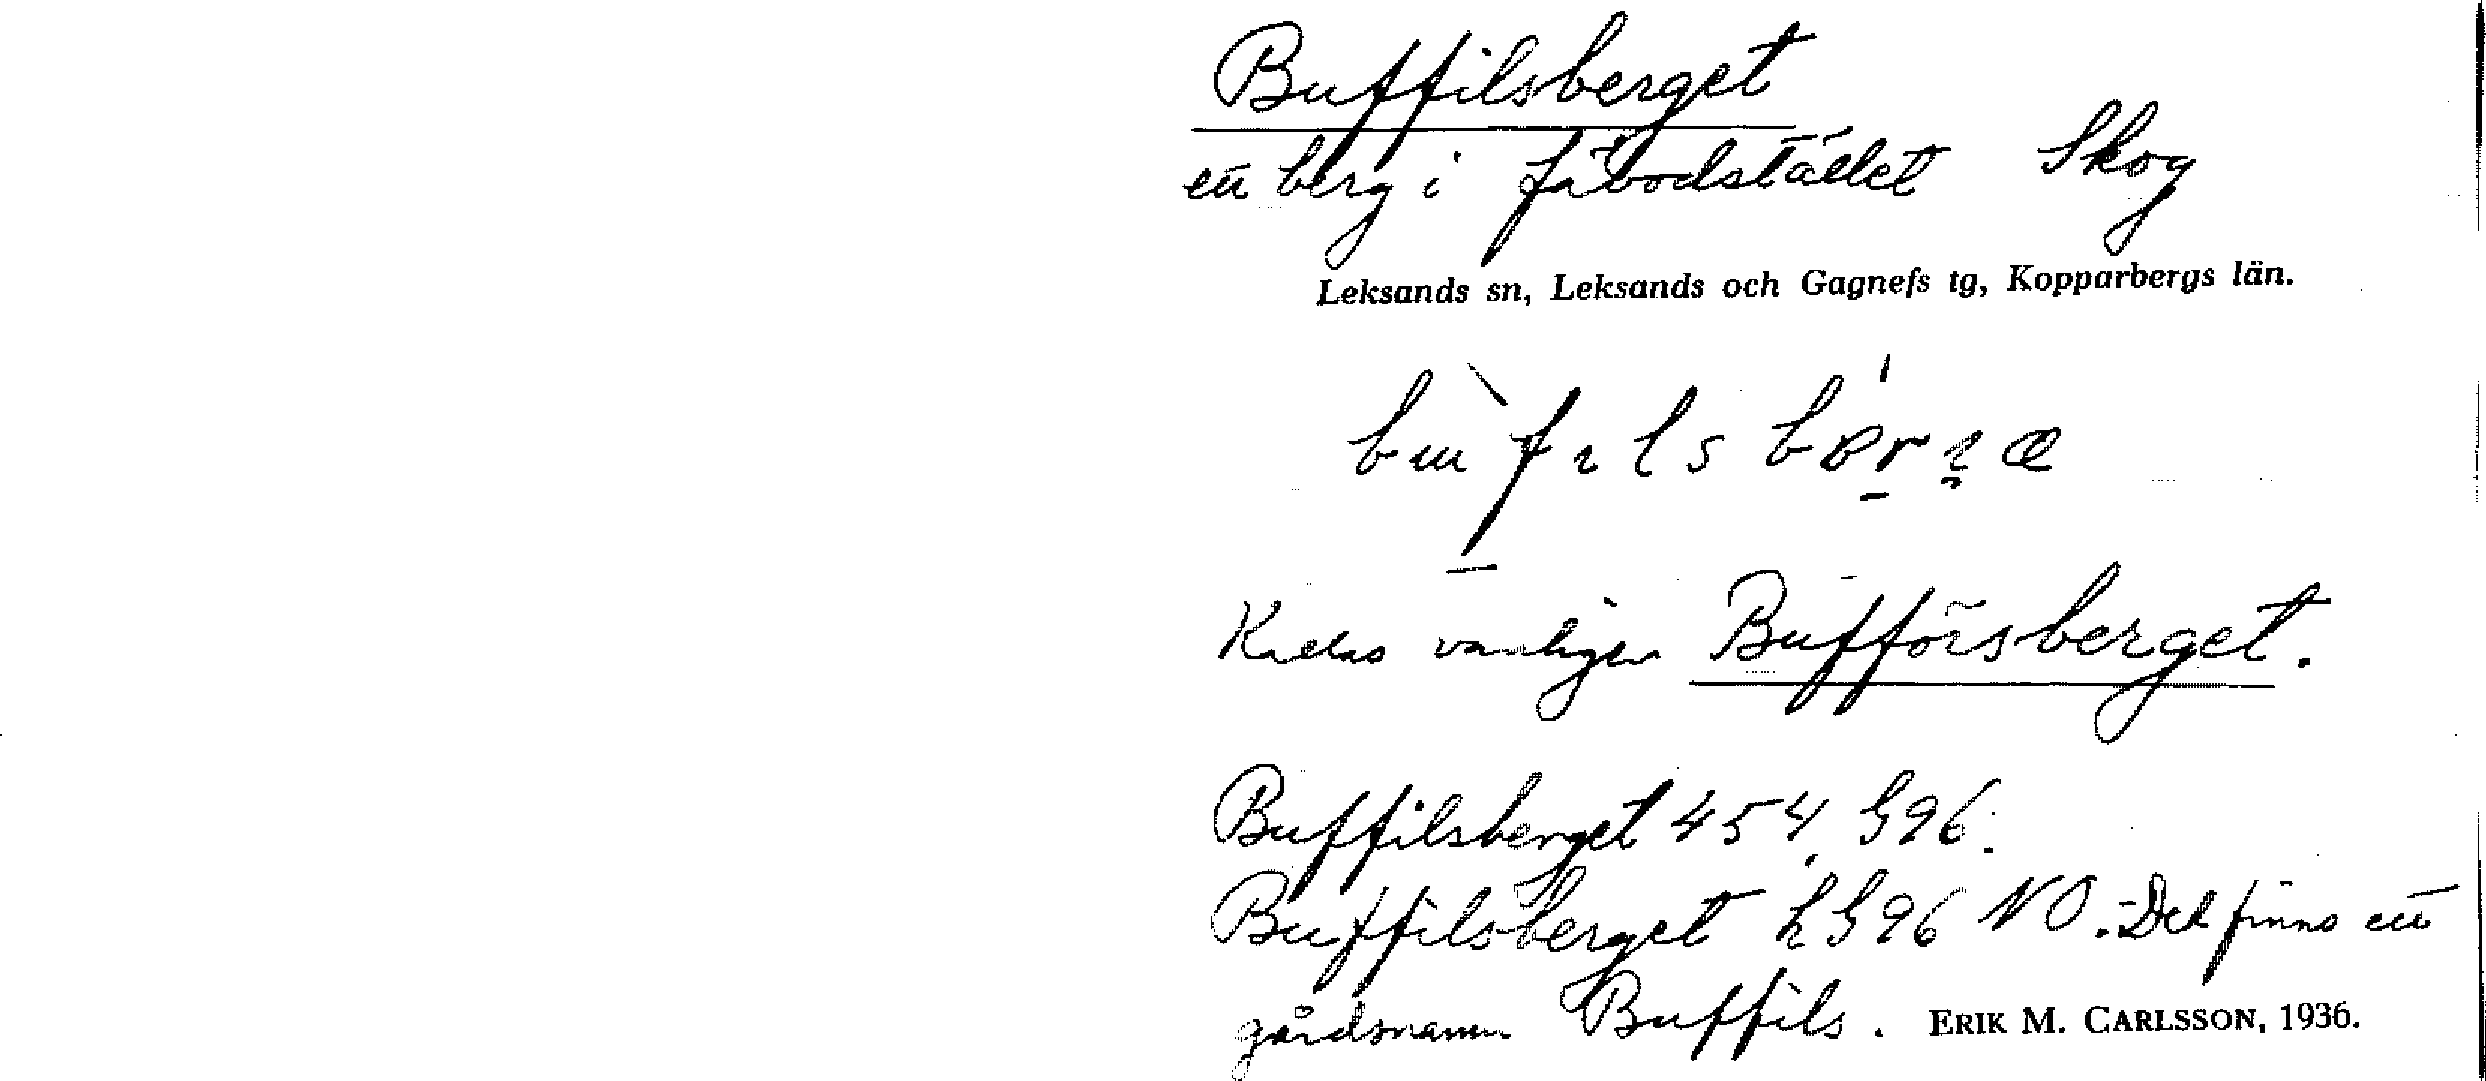 Buffilsberget
ett berg i fäbodstället Skog
Leksands sn, Leksands och Gagnefs tg, Kopparbergs län.
Kallas vanligen Bufförsberget.
Buffilsberget 454, G96.
Buffilsberget h G96 NO. Det finns ett
gårdsnamn Buffils. ERIK M. CARLSSON, 1936.